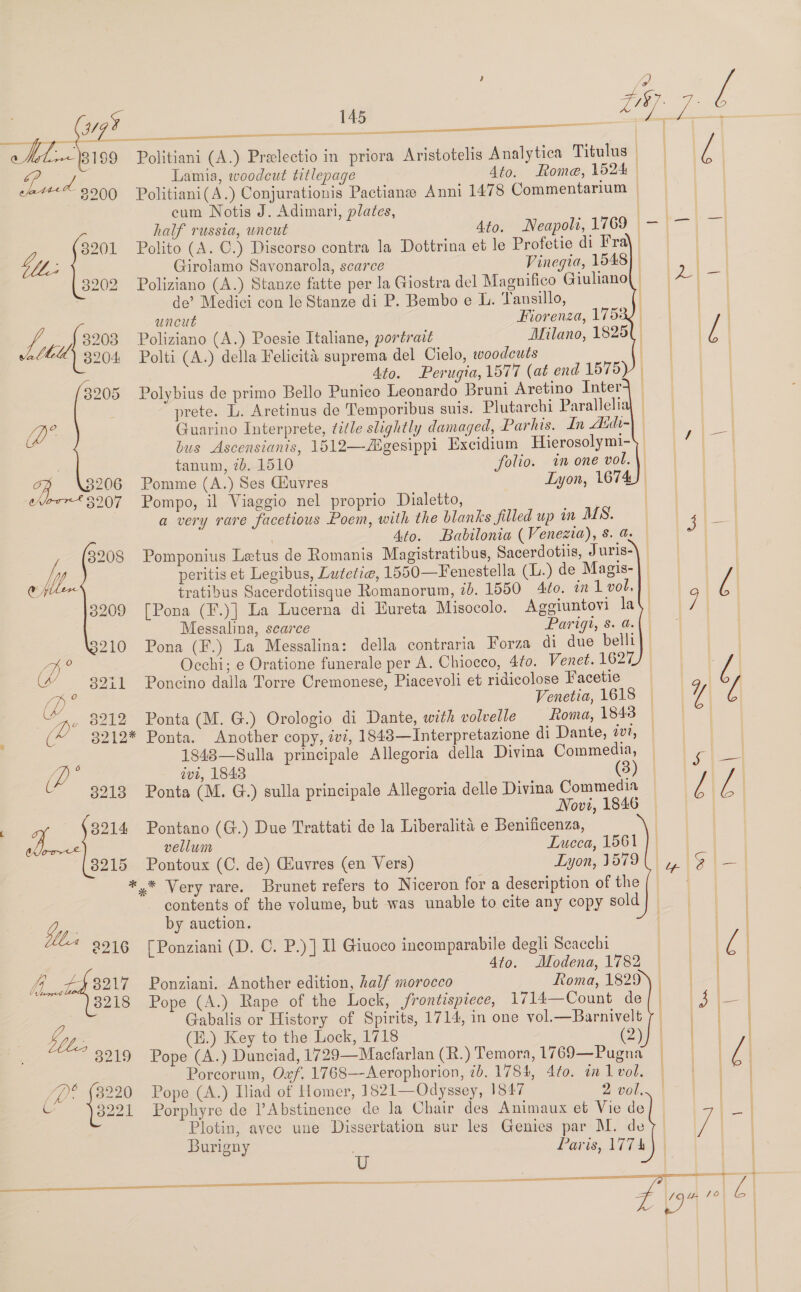 145
3199 Politiani (A.) Prælectio in priora Aristotelis Analytica Titulus
Lamia, woodcut titlepage 4to. Romæ, 1524
3200 Politiani(A.) Conjurationis Pactianæ Anni 1478 Commentarium
cum Notis J. Adimari, plates,
half russia, uncut 4to. Neapoli, 1769
3201 Polito (A. C.) Discorso contra la Dottrina et le Profetie di Fra
Girolamo Savonarola, scarce Vinegia, 1548
3202 Poliziano (A.) Stanze fatte per la Giostra del Magnifico Giuliano
de' Medici con le Stanze di P. Bembo e L. Tansillo,
uncut Fiorenza, 1753
3203 Poliziano (A.) Poesie Italiane, portrait Milano, 1825
3204 Polti (A.) della Felicità suprema del Cielo, woodcuts
4to. Perugia, 1577 (at end 1575)
3205 Polybius de primo Bello Punico Leonardo Bruni Aretino Inter-
prete. L. Aretinus de Temporibus suis. Plutarchi Parallelia
Guarino Interprete, title slightly damaged, Parhis. In Ædi-
bus Ascensianis, 1512—Ægesippi Excidium Hierosolymi-
tanum, ib. 1510 folio. in one vol.
3206 Pomme (A.) Ses Œuvres Lyon, 1674
3207 Pompo, il Viaggio nel proprio Dialetto,
a very rare facetious Poem, with the blanks filled up in MS.
4to. Babilonia (Venezia), s. a.
3208 Pomponius Lætus de Romanis Magistratibus, Sacerdotiis, Juris-
peritis et Legibus, Lutetiæ, 1550—Fenestella (L.) de Magis-
tratibus Sacerdotiisque Romanorum, ib. 1550 4to. in 1 vol.
3209 [Pona (F.)] La Lucerna di Eureta Misocolo. Aggiuntovi la
Messalina, scarce Parigi, s. a.
3210 Pona (F.) La Messalina: della contraria Forza di due belli
Occhi; e Oratione funerale per A. Chiocco, 4to. Venet. 1627
3211 Poncino dalla Torre Cremonese, Piacevoli et ridicolose Facetie
Venetia, 1618
3212 Ponta (M. G.) Orologio di Dante, with volvelle Roma, 1843
3212* Ponta. Another copy, ivi, 1843—Interpretazione di Dante, ivi,
1843—Sulla principale Allegoria della Divina Commedia,
ivi, 1843 (3)
3213 Ponta (M. G.) sulla principale Allegoria delle Divina Commedia
Novi, 1846
3214 Pontano (G.) Due Trattati de la Liberalità e Benificenza,
vellum Lucca, 1561
3215 Pontoux (C. de) Œuvres (en Vers) Lyon, 1579
*** Very rare. Brunet refers to Niceron for a description of the
contents of the volume, but was unable to cite any copy sold
by auction.
3216 [Ponziani (D. C. P.)] Il Giuoco incomparabile degli Scacchi
4to. Modena, 1782
3217 Ponziani. Another edition, half morocco Roma, 1829
3218 Pope (A.) Rape of the Lock, frontispiece, 1714—Count de
Gabalis or History of Spirits, 1714, in one vol.—Barnivelt
(E.) Key to the Lock, 1718 (2)
3219 Pope (A.) Dunciad, 1729—Macfarlan (R.) Temora, 1769—Pugna
Porcorum, Oxf. 1768—Aerophorion, ib. 1784, 4to. in 1 vol.
3220 Pope (A.) Iliad of Homer, 1821—Odyssey, 1847 2 vol.
3221 Porphyre de l'Abstinence de la Chair des Animaux et Vie de
Plotin, avec une Dissertation sur les Genies par M. de
Burigny Paris, 1774
U